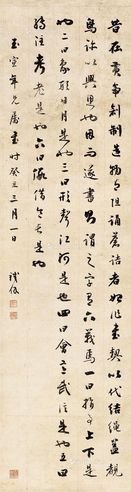 昔在黃帝創制造物有沮誦蒼頡者始作書契以代結繩蓋
鳥跡以興思也因而遂則謂之字有六義焉一曰指事上下是
也二曰象形日月是三曰形聲江河是也四曰會意武信是也五曰
轉注考老是也六曰假借令長是也
玉宣年兄屬書時癸丑三月一日